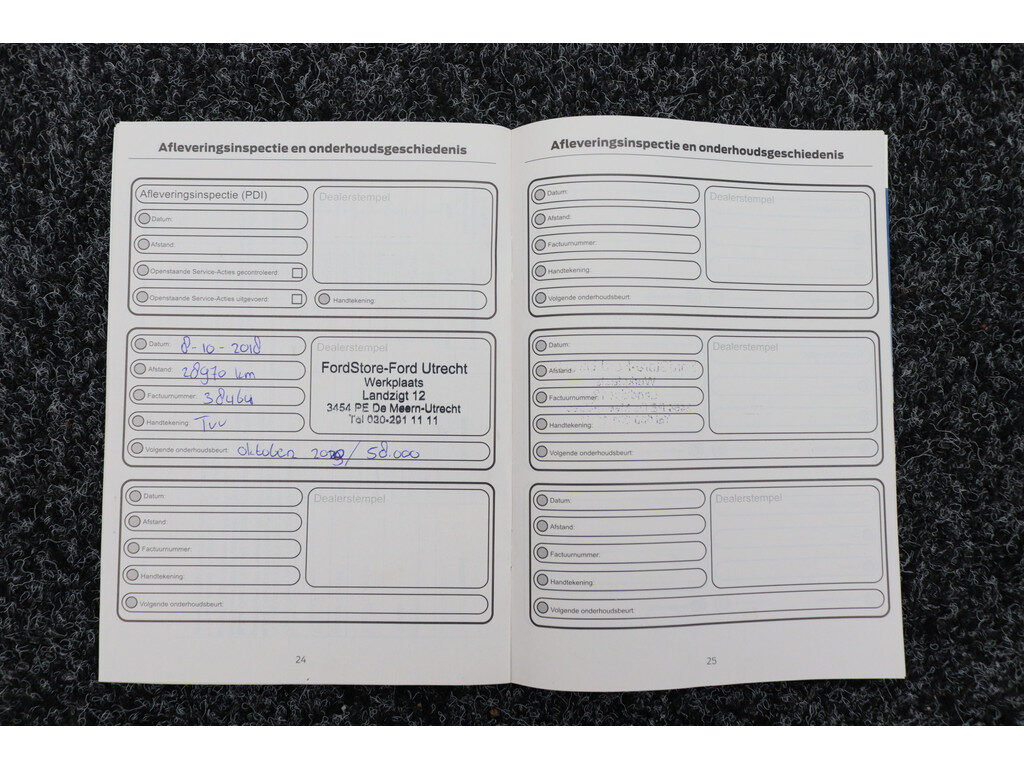 Afleveringsinspectie en onderhoudsgeschiedenis
Afleveringsinspectie (PDI)
Dealerstempel
Datum:
Afstand:
Openstaande Service-Acties gecontroleerd:
Openstaande Service-Acties uitgevoerd:
Handtekening:
Datum: 8-10-2018
Afstand: 28970 km
Factuurnummer: 38464
Handtekening: Tvv
Volgende onderhoudsbeurt: oktober / 58.000
Dealerstempel
FordStore-Ford Utrecht
Werkplaats
Landzigt 12
3454 PE De Meern-Utrecht
Tel 030-291 11 11
Datum:
Afstand:
Factuurnummer:
Handtekening:
Volgende onderhoudsbeurt:
Dealerstempel
24
Afleveringsinspectie en onderhoudsgeschiedenis
Datum:
Afstand:
Factuurnummer:
Handtekening:
Volgende onderhoudsbeurt:
Dealerstempel
Datum:
Afstand:
Factuurnummer:
Handtekening:
Volgende onderhoudsbeurt:
Dealerstempel
Datum:
Afstand:
Factuurnummer:
Handtekening:
Volgende onderhoudsbeurt:
Dealerstempel
25